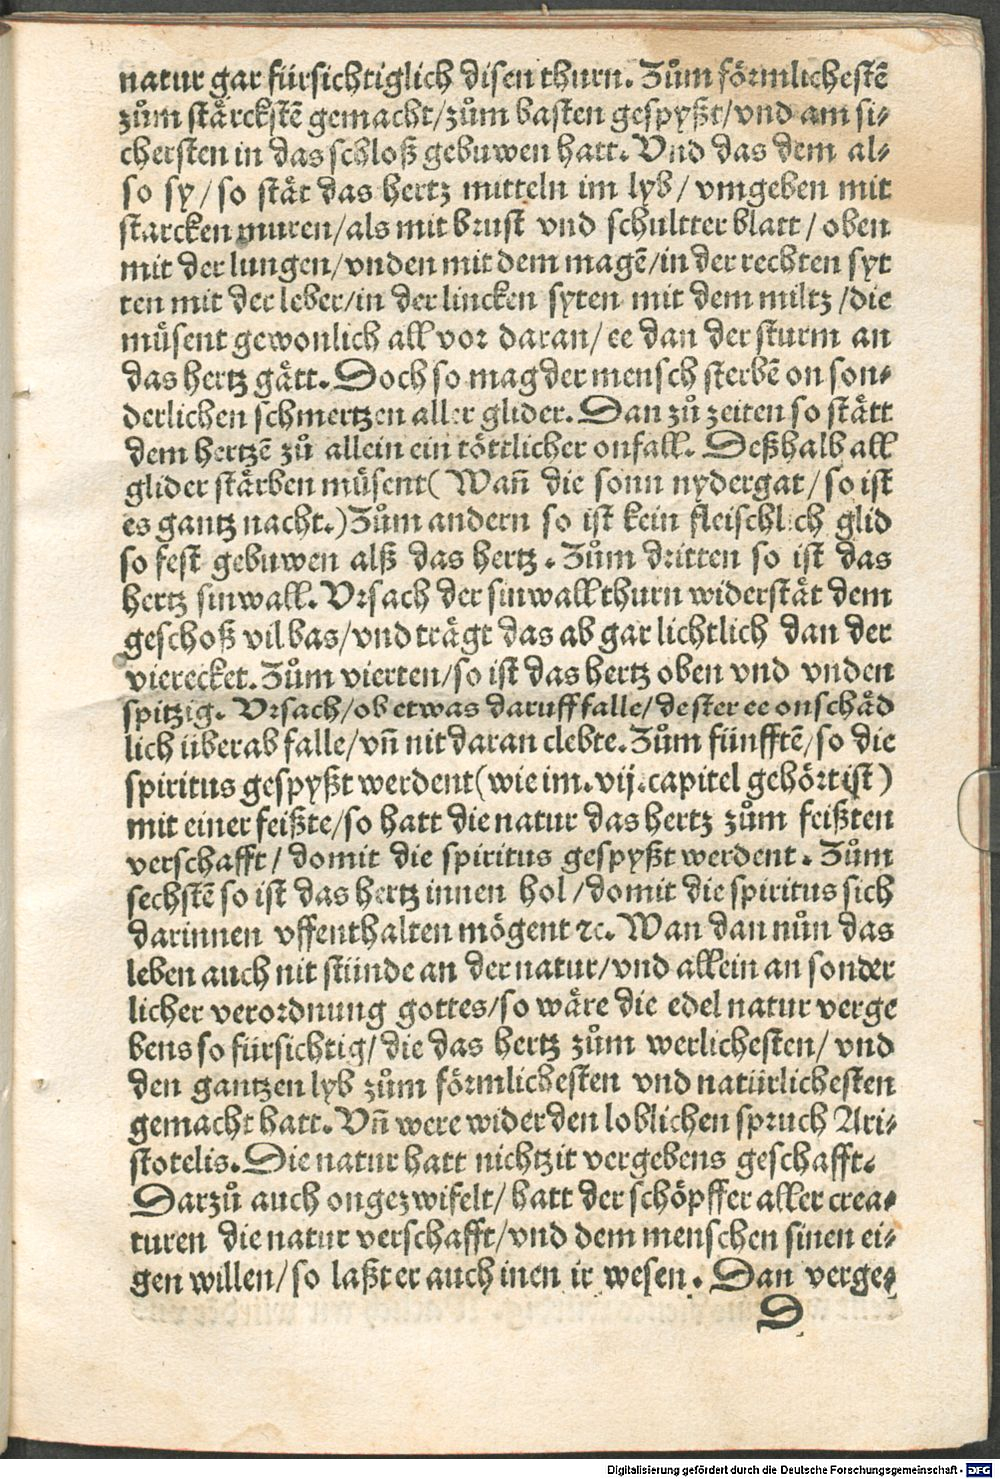 natur gar fürsichtiglich disen thurn. Zům förmlichestē
zům stärckstē gemacht/zům basten gespyßt/vnd am si⸗
chersten in das schloß gebuwen hatt. Vnd das dem al⸗
so sy/so stät das hertz mitteln im lyb/vmgeben mit
starcken muren/als mit brust vnd schultter blatt/oben
mit der lungen/vnden mit dem magē/in der rechten syt
ten mit der leber/in der lincken syten mit dem miltz/die
müsent gewonlich all vor daran/ee dan der sturm an
das hertz gätt. Doch so mag der mensch sterbē on son⸗
derlichen schmertzen aller glider. Dan zů zeiten so stätt
dem hertzē zů allein ein töttlicher onfall. Deßhalb all
glider stärben müsent( Wañ die sonn nydergat/so ist
es gantz nacht.)Zům andern so ist kein fleischlich glid
so fest gebuwen alß das hertz. Zům dritten so ist das
hertz sinwall. Vrsach der sinwall thurn widerstät dem
geschoß vil bas/vnd trägt das ab gar lichtlich dan der
vierecket. Zům vierten/so ist das hertz oben vnd vnden
spitzig. Vrsach/ob etwas daruff falle/dester ee onschäd
lich überab falle/vñ nit daran clebte. Zům fünfftē/so die
spiritus gespyßt werdent(wie im.vij.capitel gehört ist)
mit einer feißte/so hatt die natur das hertz zům feißten
verschafft/domit die spiritus gespyßt werdent. Zům
sechstē so ist das hertz innen hol/domit die spiritus sich
darinnen vffenthalten mögent ꝛc. Wan dan nůn das
leben auch nit stünde an der natur/vnd allein an sonder
licher verordnung gottes/so wäre die edel natur verge
bens so fürsichtig/die das hertz zům werlichesten/vnd
den gantzen lyb zům förmlichesten vnd natürlichesten
gemacht hatt. Vñ were wider den loblichen spruch Ari⸗
stotelis. Die natur hatt nichtzit vergebens geschafft.
Darzů auch ongezwifelt/hatt der schöpffer aller crea⸗
turen die natur verschafft/vnd dem menschen sinen ei⸗
gen willen/so laßt er auch inen ir wesen. Dan verge⸗
D
Digitalisierung gefördert durch die Deutsche Forschungsgemeinschaft - DFG